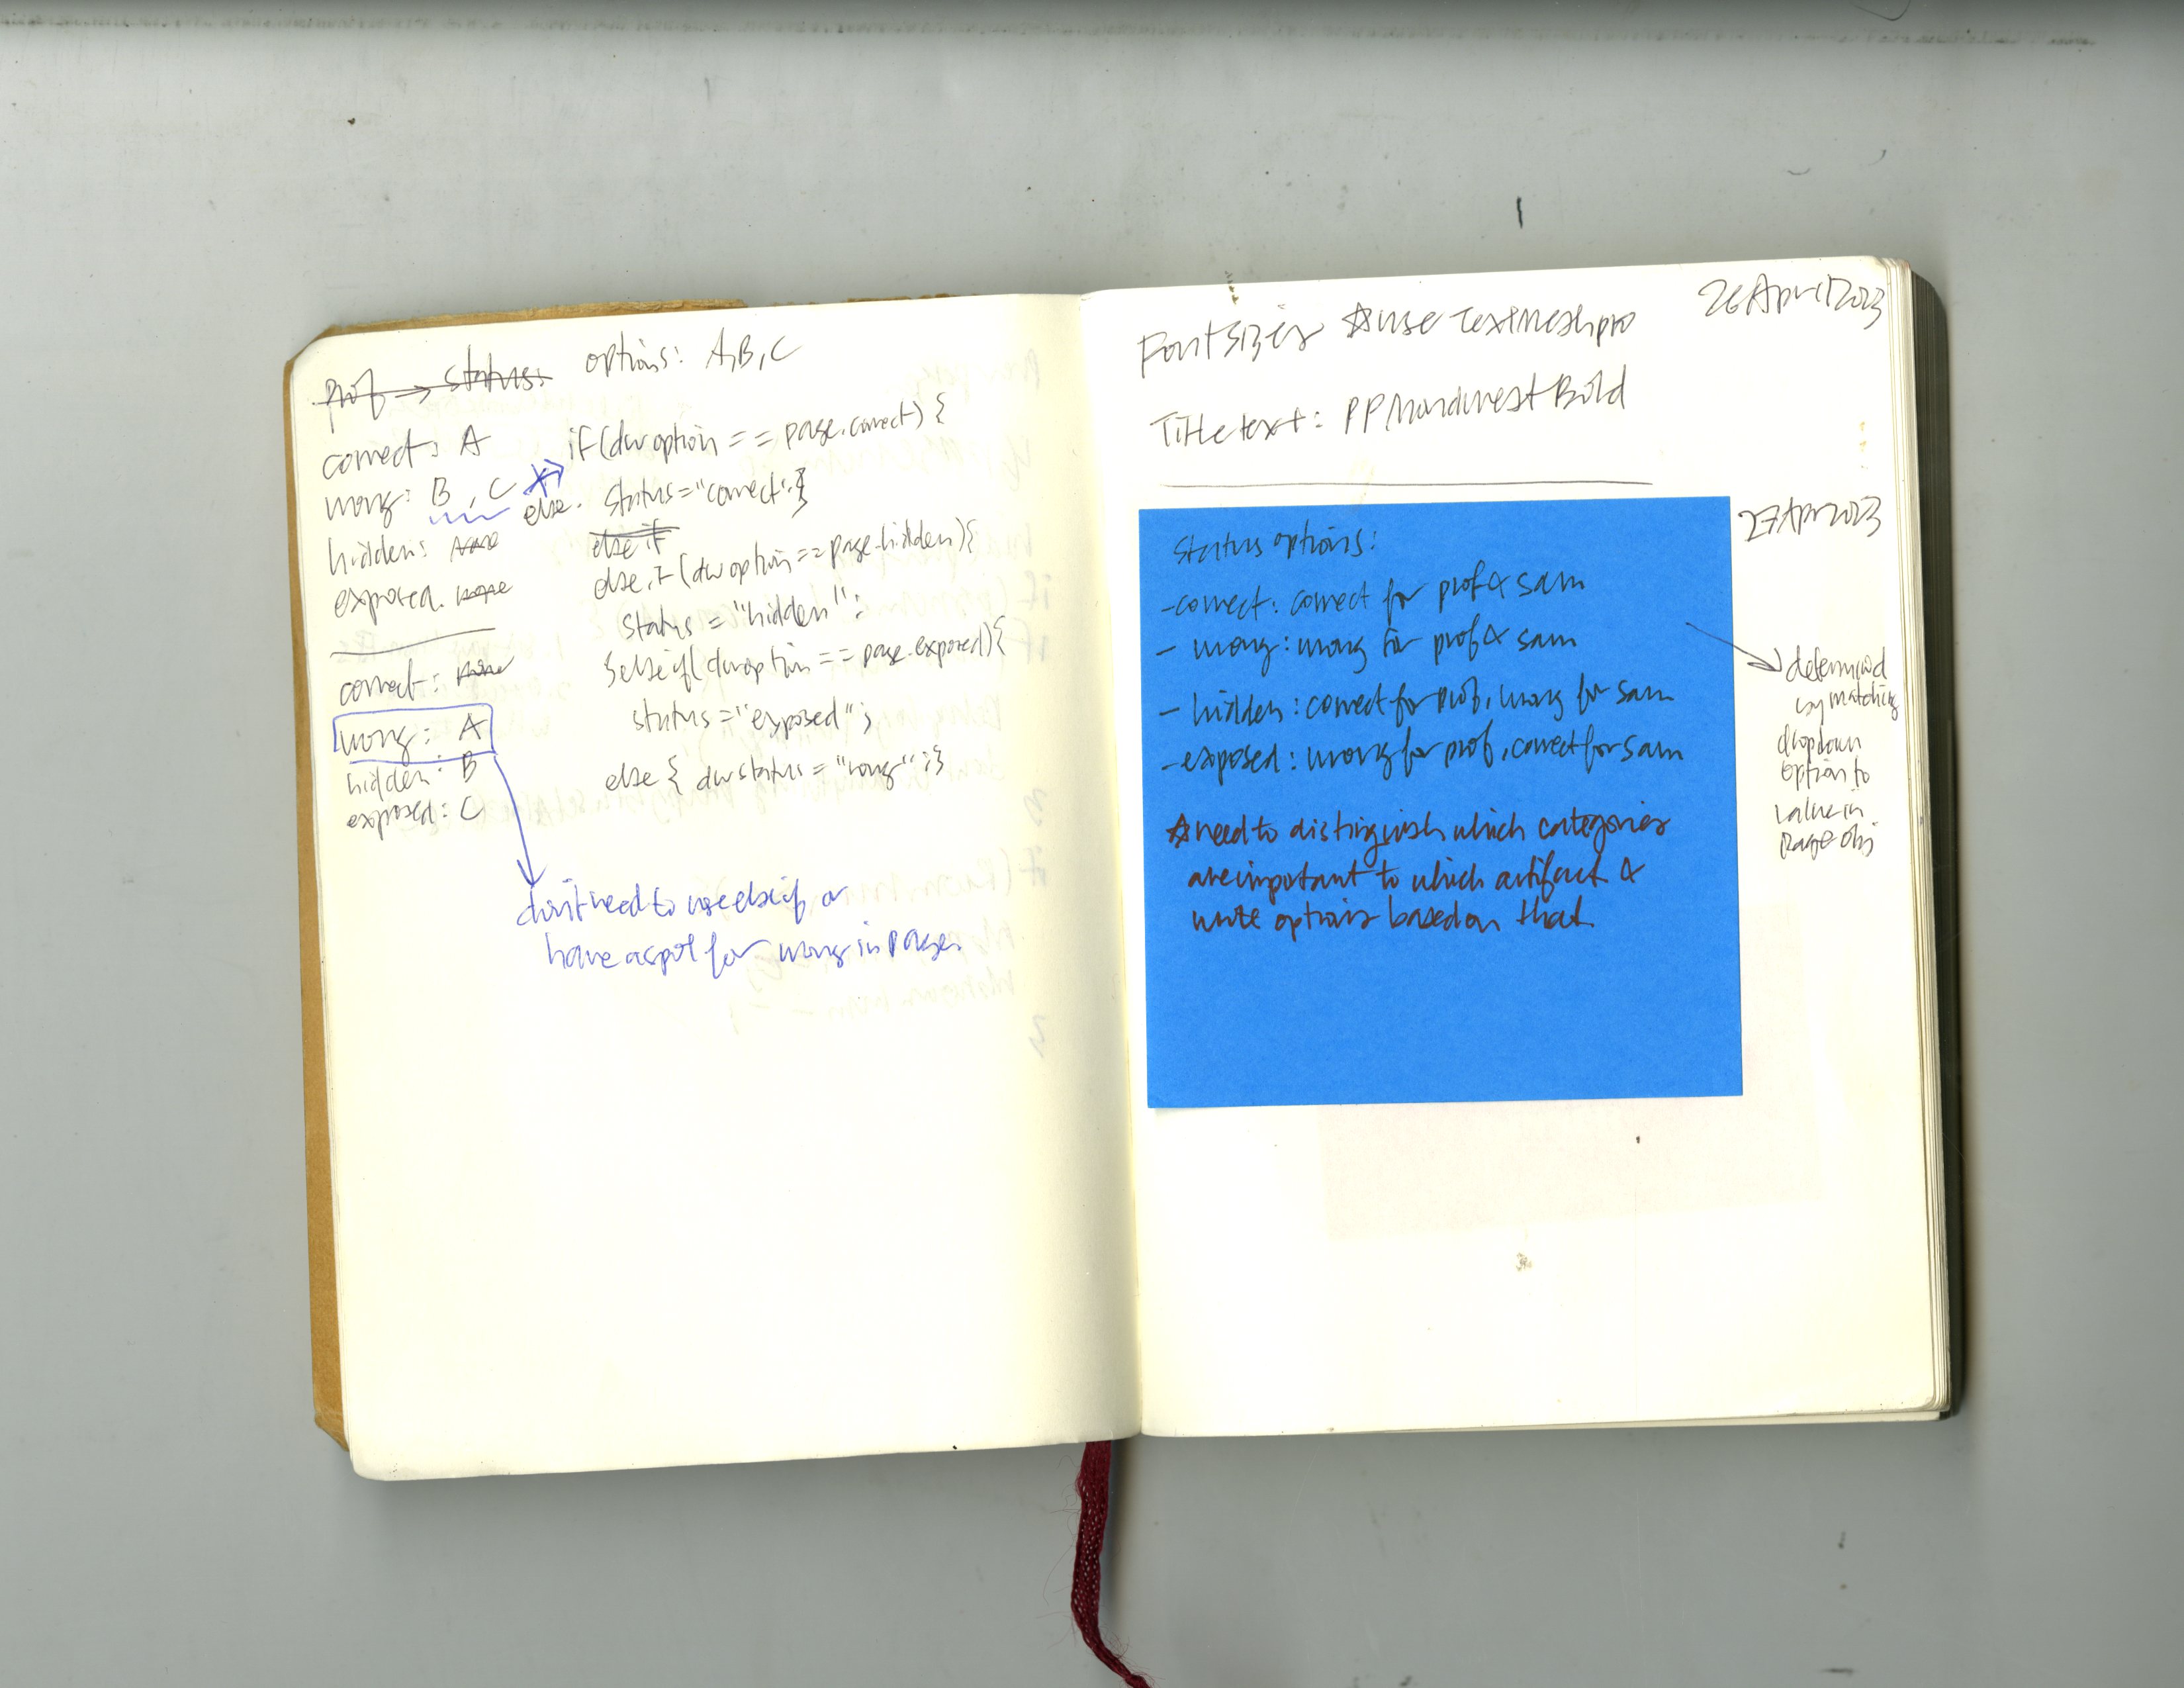 prof → status: options: A, B, C
correct: A
wrong: B, C
hidden: none
exposed. none
correct: none
wrong: A
hidden: B
exposed: C
if(dwoption == page.correct) {
else. status="correct";}
else if
else if (dwoption == page.hidden){
status = "hidden";
}else if( dwoption == page.exposed){
status = "exposed";
else { dwstatus = "wrong";}
don't need to use else if or
have a spot for wrong in page.
26 April 2023
Font sizes ☆use TextMeshpro
Title text: PP Mondwest Bold
27 Apr 2023
Status options:
- correct: correct for prof & sam
- wrong: wrong for prof & sam
- hidden: correct for prof, wrong for sam
- exposed: wrong for prof, correct for sam
☆need to distinguish which categories
are important to which artifact &
write options based on that
determined
by matching
dropdown
option to
value in
page obj